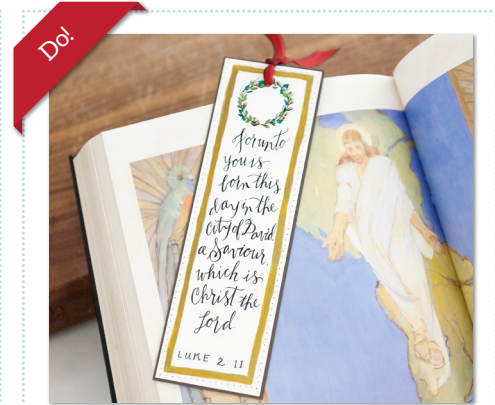 Do!
for unto
you is
born this
day in the
city of David
a Saviour,
which is
Christ the
Lord
LUKE 2:11